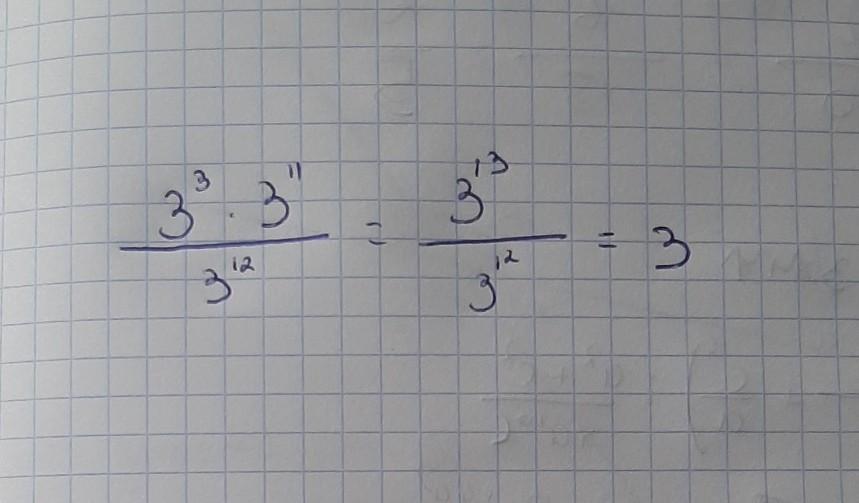 \frac{3^3 \cdot 3^{11}}{3^{12}} = \frac{3^{13}}{3^{12}} = 3